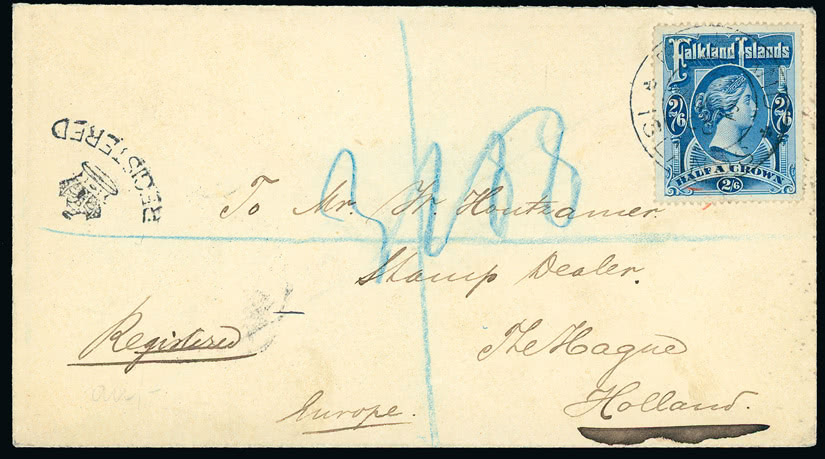 Falkland Islands
2/6 2/6
HALF A CROWN
2/6
REGISTERED
To Mr. W. Houtzamer
Stamp Dealer.
Registered
The Hague
Europe.
Holland.